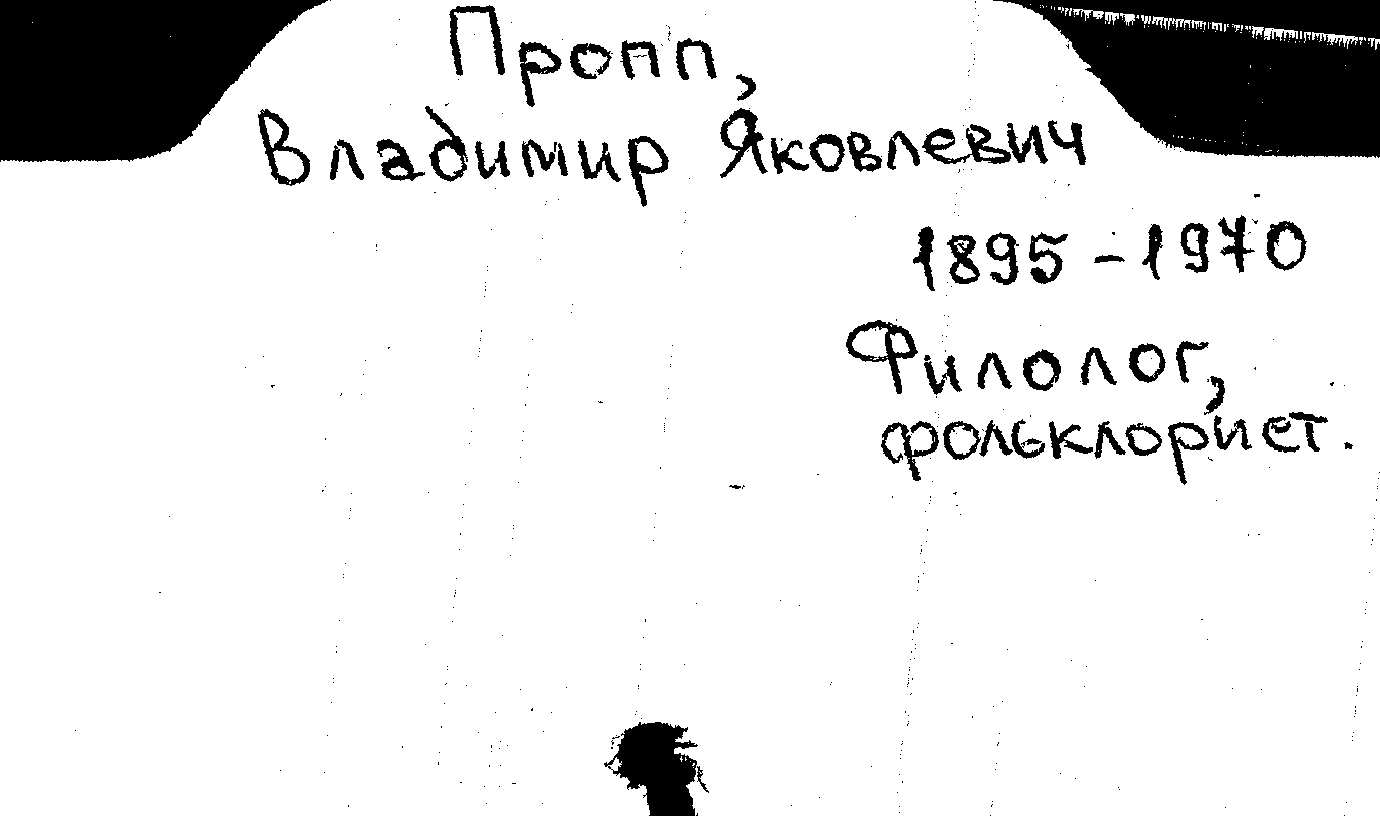 Пропп,
Владимир Яковлевич
1895-1970
Филолог,
фольклорист.